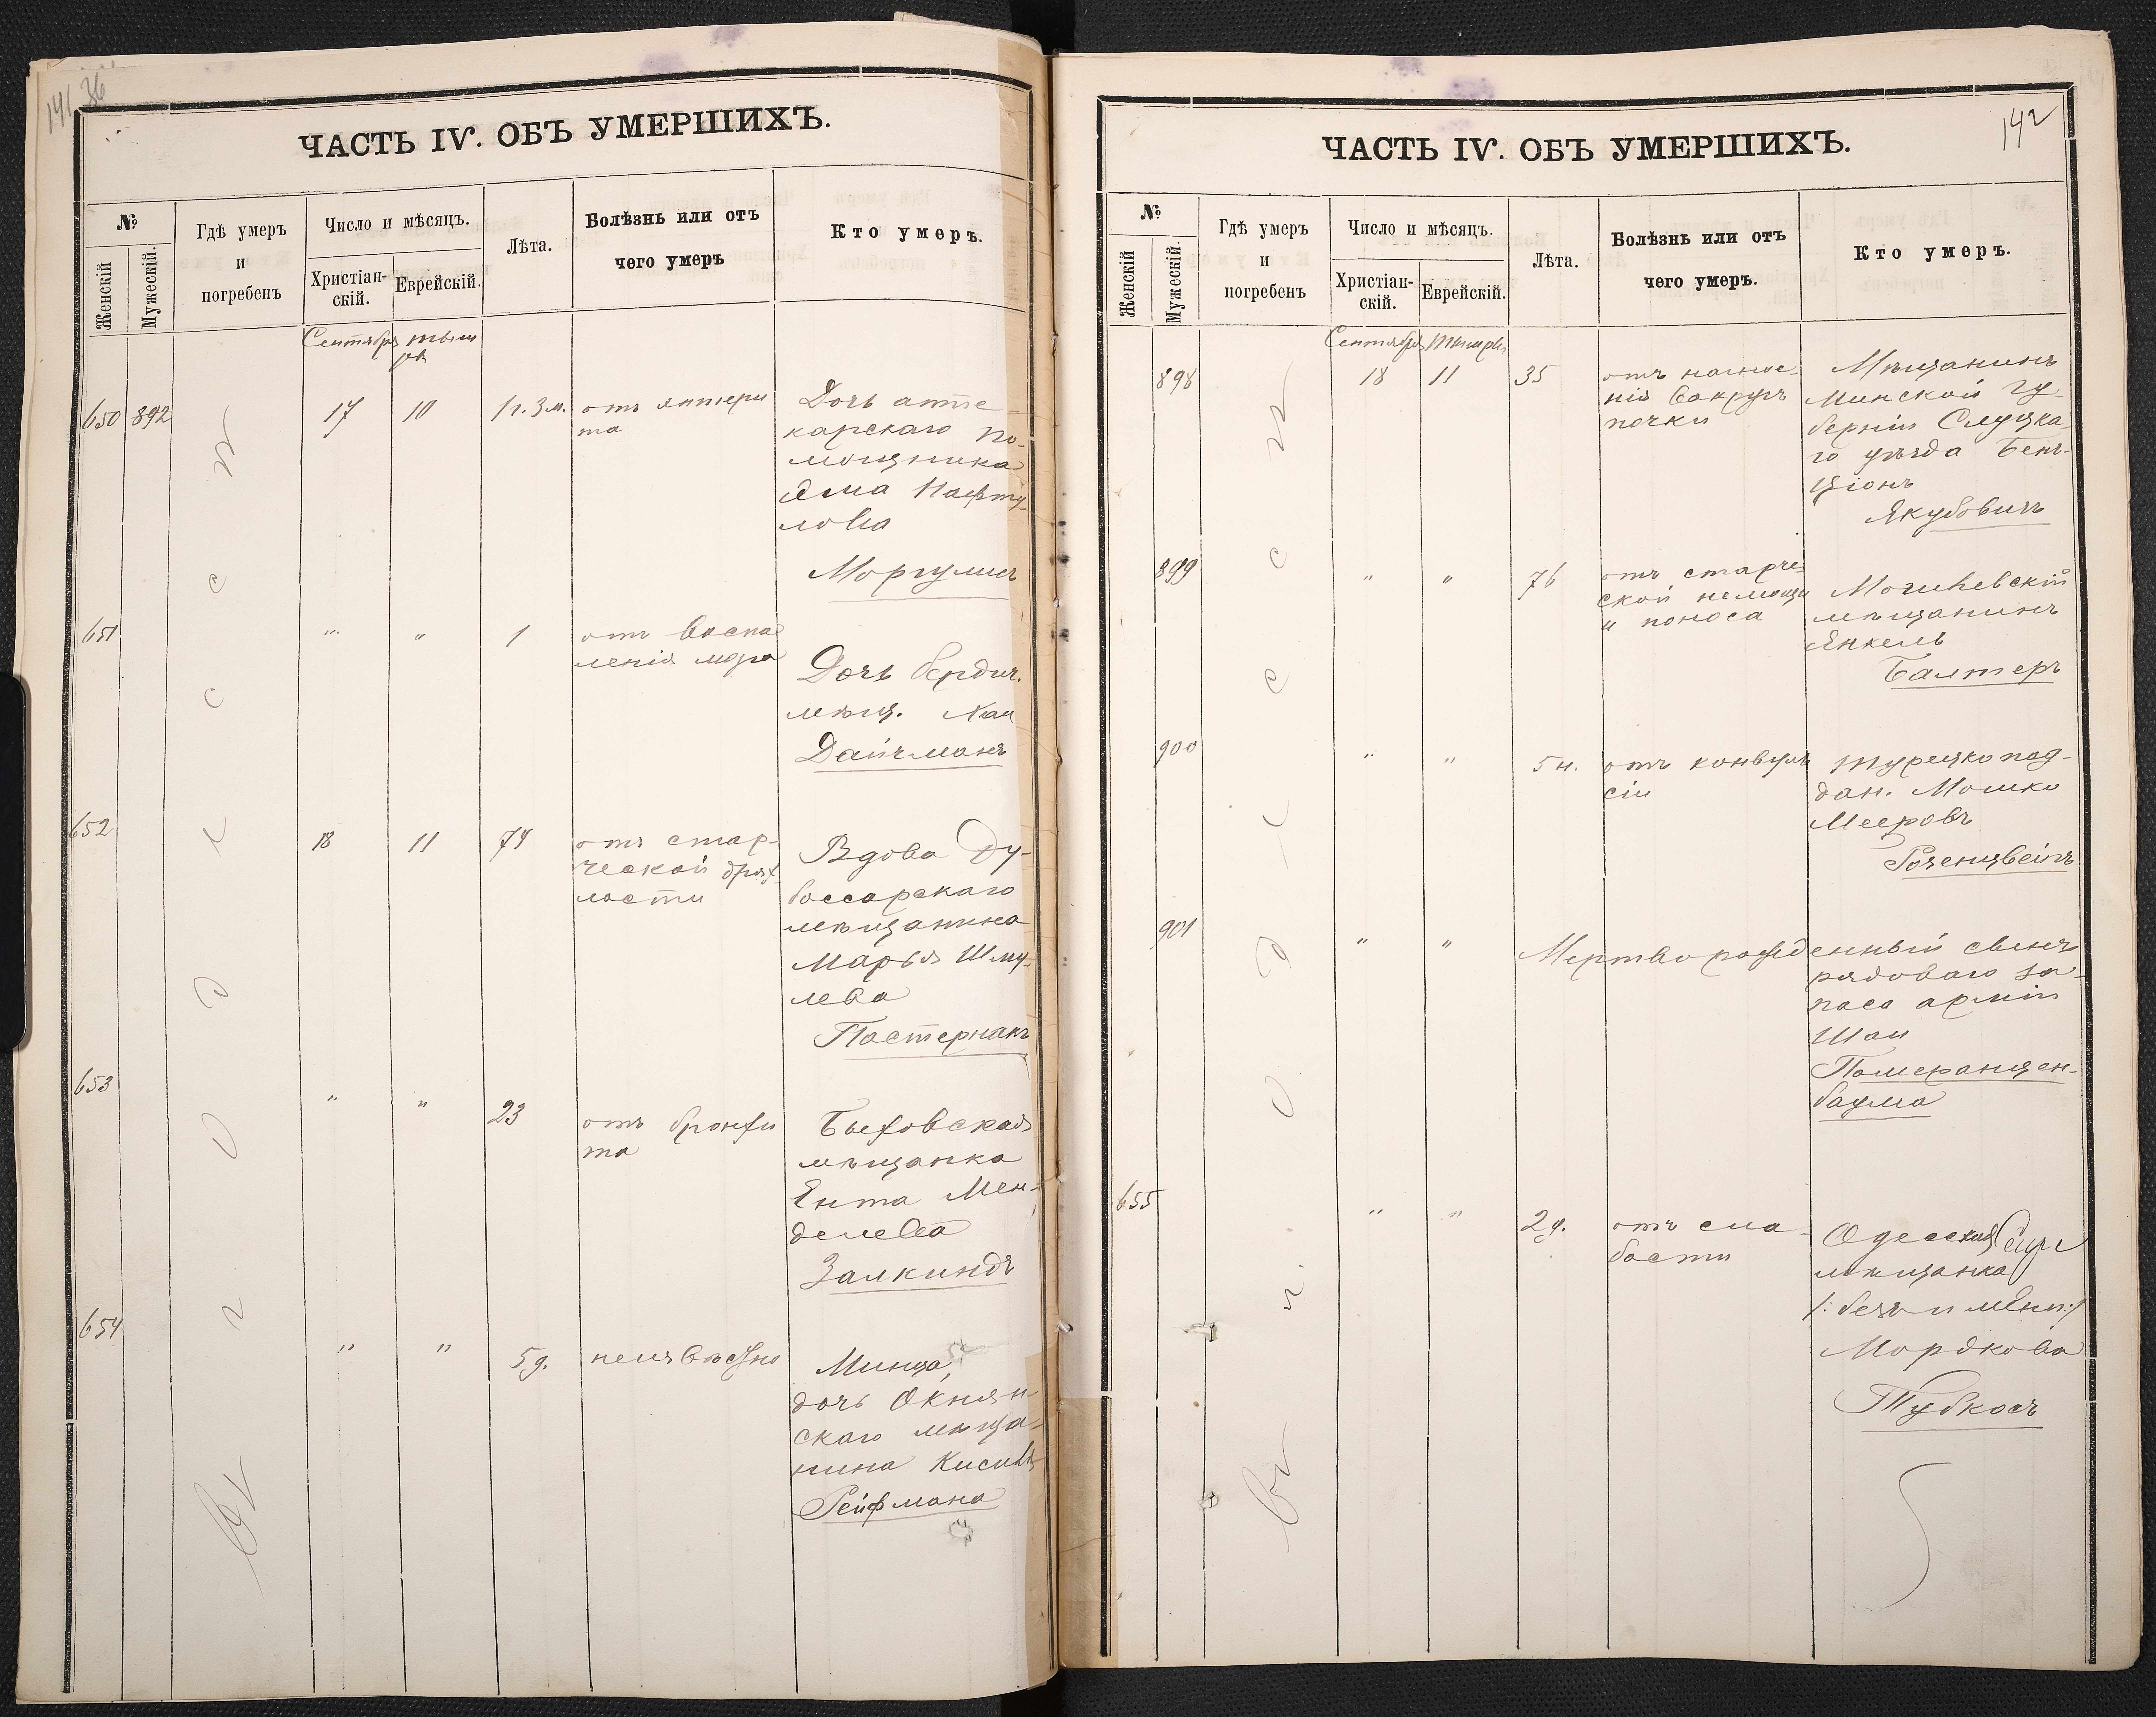 141 36
ЧАСТЬ IV. ОБЪ УМЕРШИХЪ.
№
Женскій
Мужескій.
Гдѣ умеръ
и
погребенъ
Число и мѣсяцъ.
Христіан-
скій.
Еврейскій.
Лѣта.
Болѣзнь или отъ
чего умеръ
Кто умеръ.
Сентября тыш
ря
въ г. Одессѣ
650 892 17 10 1г. 3м.
отъ энтери
та
Дочь апте
карскаго по-
мощника
Эма Нафту-
лова
Моргулисъ
651 " " 1
отъ воспа
ленія мозга
Дочь бердич.
мѣщ. Хаи
Дайчманъ
652 18 11 74
отъ стар-
ческой дрях-
лости
Вдова Ду-
боссарскаго
мѣщанина
Марья Шму-
лева
Пастернакъ
653 " " 23
отъ бронхи
та
Быховская
мѣщанка
Ента Мен-
делева
Залкиндъ
654 " " 5д.
неизвѣстно
Минца,
дочь Окнян
скаго мѣща-
нина Кисиль
Рейфмана
142
ЧАСТЬ IV. ОБЪ УМЕРШИХЪ.
№
Женскій
Мужескій.
Гдѣ умеръ
и
погребенъ
Число и мѣсяцъ.
Христіан-
скій.
Еврейскій.
Лѣта.
Болѣзнь или отъ
чего умеръ.
Кто умеръ.
Сентября Тышря
въ г. Одессѣ
898 18 11 35
отъ нагное-
нія вокругъ
почки
Мѣщанинъ
Минской гу-
берніи Слуцка-
го уѣзда Бенъ-
Ціонъ
Якубовичъ
899 " " 76
отъ старче-
ской немощи
и поноса
Могилевскій
мѣщанинъ
Янкель
Балтеръ
900 " " 5н.
отъ конвуль
сіи
Турецкопод-
дан. Мошко
Мееровъ
Розенцвейгъ
901 " "
Мертворожденный сынъ
рядоваго за-
паса арміи
Шаи
Померанцен-
баума
655 " " 2д.
отъ сла-
бости
Одесская
мѣщанка
/: безъ имени :/
Мордкова
Тубкосъ